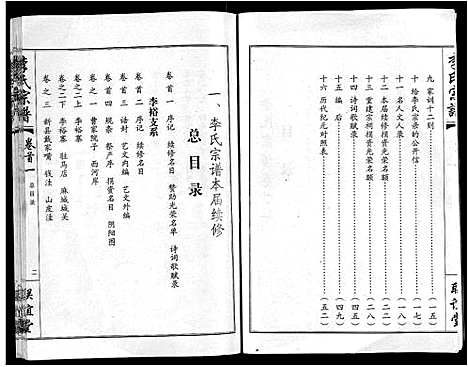 李氏宗譜
九 家训十二则 (一五)
十 给李氏宗亲的公开信 (一七)
十一 名人文人录
十二 本届续修捐资光荣名额
十三 重建宗祠捐资光荣名额
十四 诗词歌赋录
十五 编后 (四九)
十六 历代纪元对照表 (五二)
一、李氏宗谱本届续修
总目录
卷首一 序记 续修名目 赞助光荣名单 诗词歌赋录
卷首二 序记 续修名目
李裕支系
卷首三 诰封 艺文内编 艺文外编
卷首四 规杂 祭产序 捐资名目 阴阳图
卷之一 曹家院子 西河岸
卷之二上 李裕寨 驻马店 麻城城关
卷之二下 李裕寨
卷之三 新县戴家嘴 钱洼 山皮洼
李氏宗譜
卷首一
总目录
二